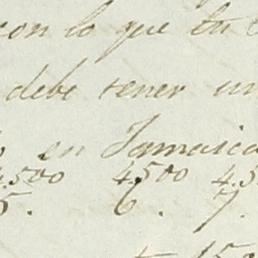 con lo que tu
debe tener un
en Jamaica
4.500 4.500 4.5
5. 6. 7.